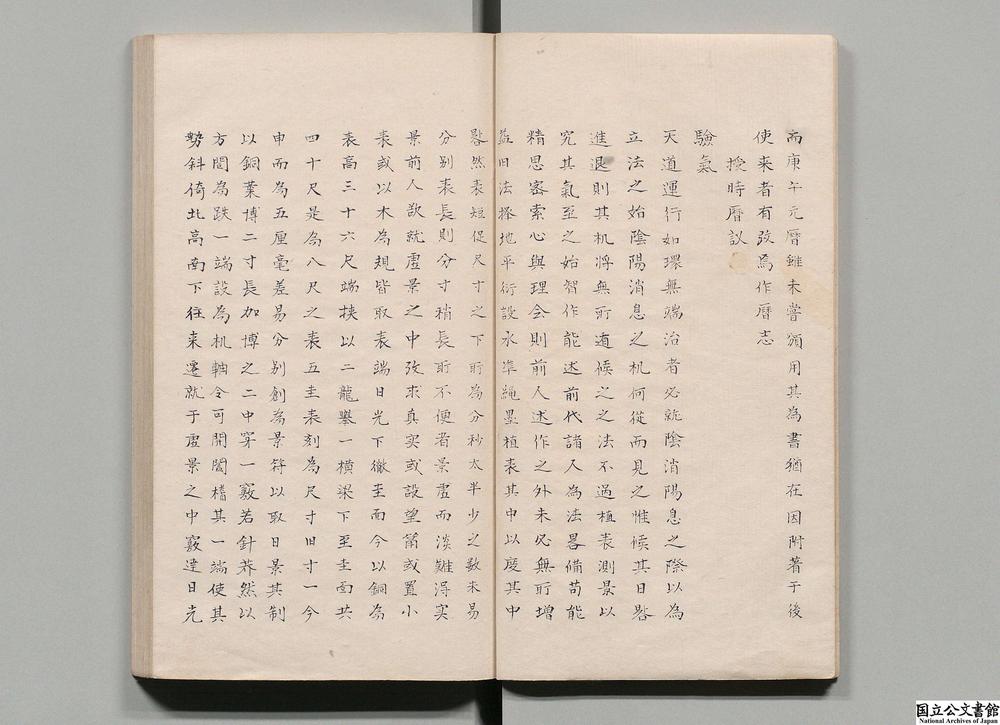 而庚午元曆雖未嘗頒用其為書猶在因附著于後
使来者有攷焉作曆志
授時曆議
驗氣
天道運行如環無端治者必就陰消陽息之際以為
立法之始陰陽消息之机何從而見之惟候其日晷
進退則其机将無所遁候之之法不過植表測景以
究其氣至之始智作能述前代諸人為法畧備苟能
精思密索心與理会則前人述作之外未必無所增
益旧法擇地平衍設水準繩墨植表其中以度其中
晷然表短促尺寸之下所為分秒太半少之数未易
分别表長則分寸稍長所不便者景虚而淡難得実
景前人欲就虚景之中攷求真实或設望筩或置小
表或以木為規皆取表端日光下徹圭面今以銅為
表高三十六尺端挟以二龍擧一横梁下至圭面共
四十尺是為八尺之表五圭表刻為尺寸旧寸一今
申而為五厘毫差易分别創為景符以取日景其制
以銅葉博二寸長加博之二中穿一竅若針芥然以
方閫為趺一端設為机軸令可開闔榰其一端使其
勢斜倚北高南下往来遷就于虚景之中竅達日光
国立公文書館
National Archives of Japan